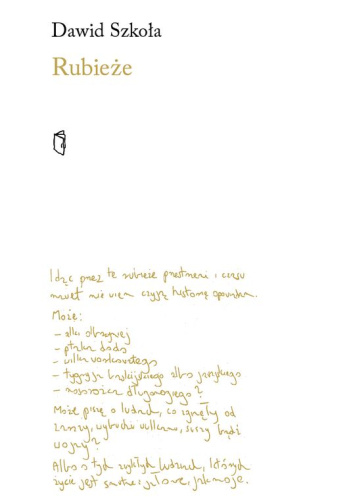 Dawid Szkoła
Rubieże
Idąc przez te rubieże przestrzeni i czasu
nawet nie wiem czyją historię opowiadam.
Może:
- alki olbrzymiej
- ptaka dodo
- wilka workowatego
- tygrysa balijskiego albo jawajskiego
- nosorożca długorogiego?
Może piszę o ludach, co zginęły od
zarazy, wybuchu wulkanu, suszy bądź
wojny?
Albo o tych zwykłych ludziach, których
życie jest jak moje.